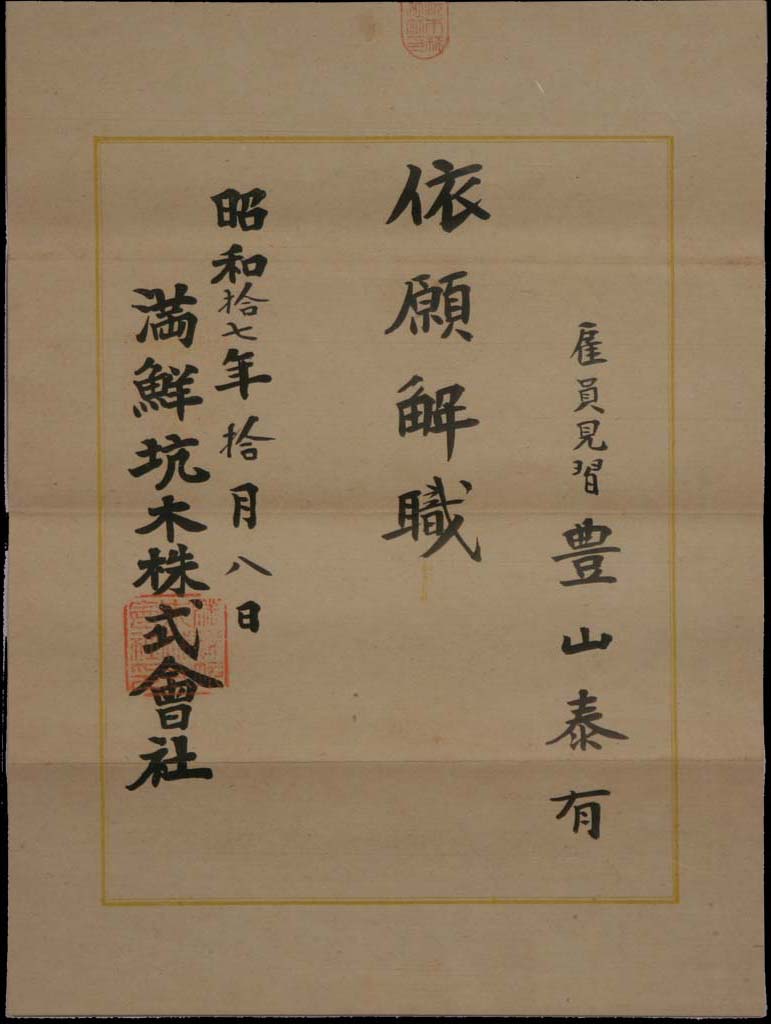 雇員見習 豊山泰有
依願解職
昭和拾七年拾月八日
満鮮坑木株式會社